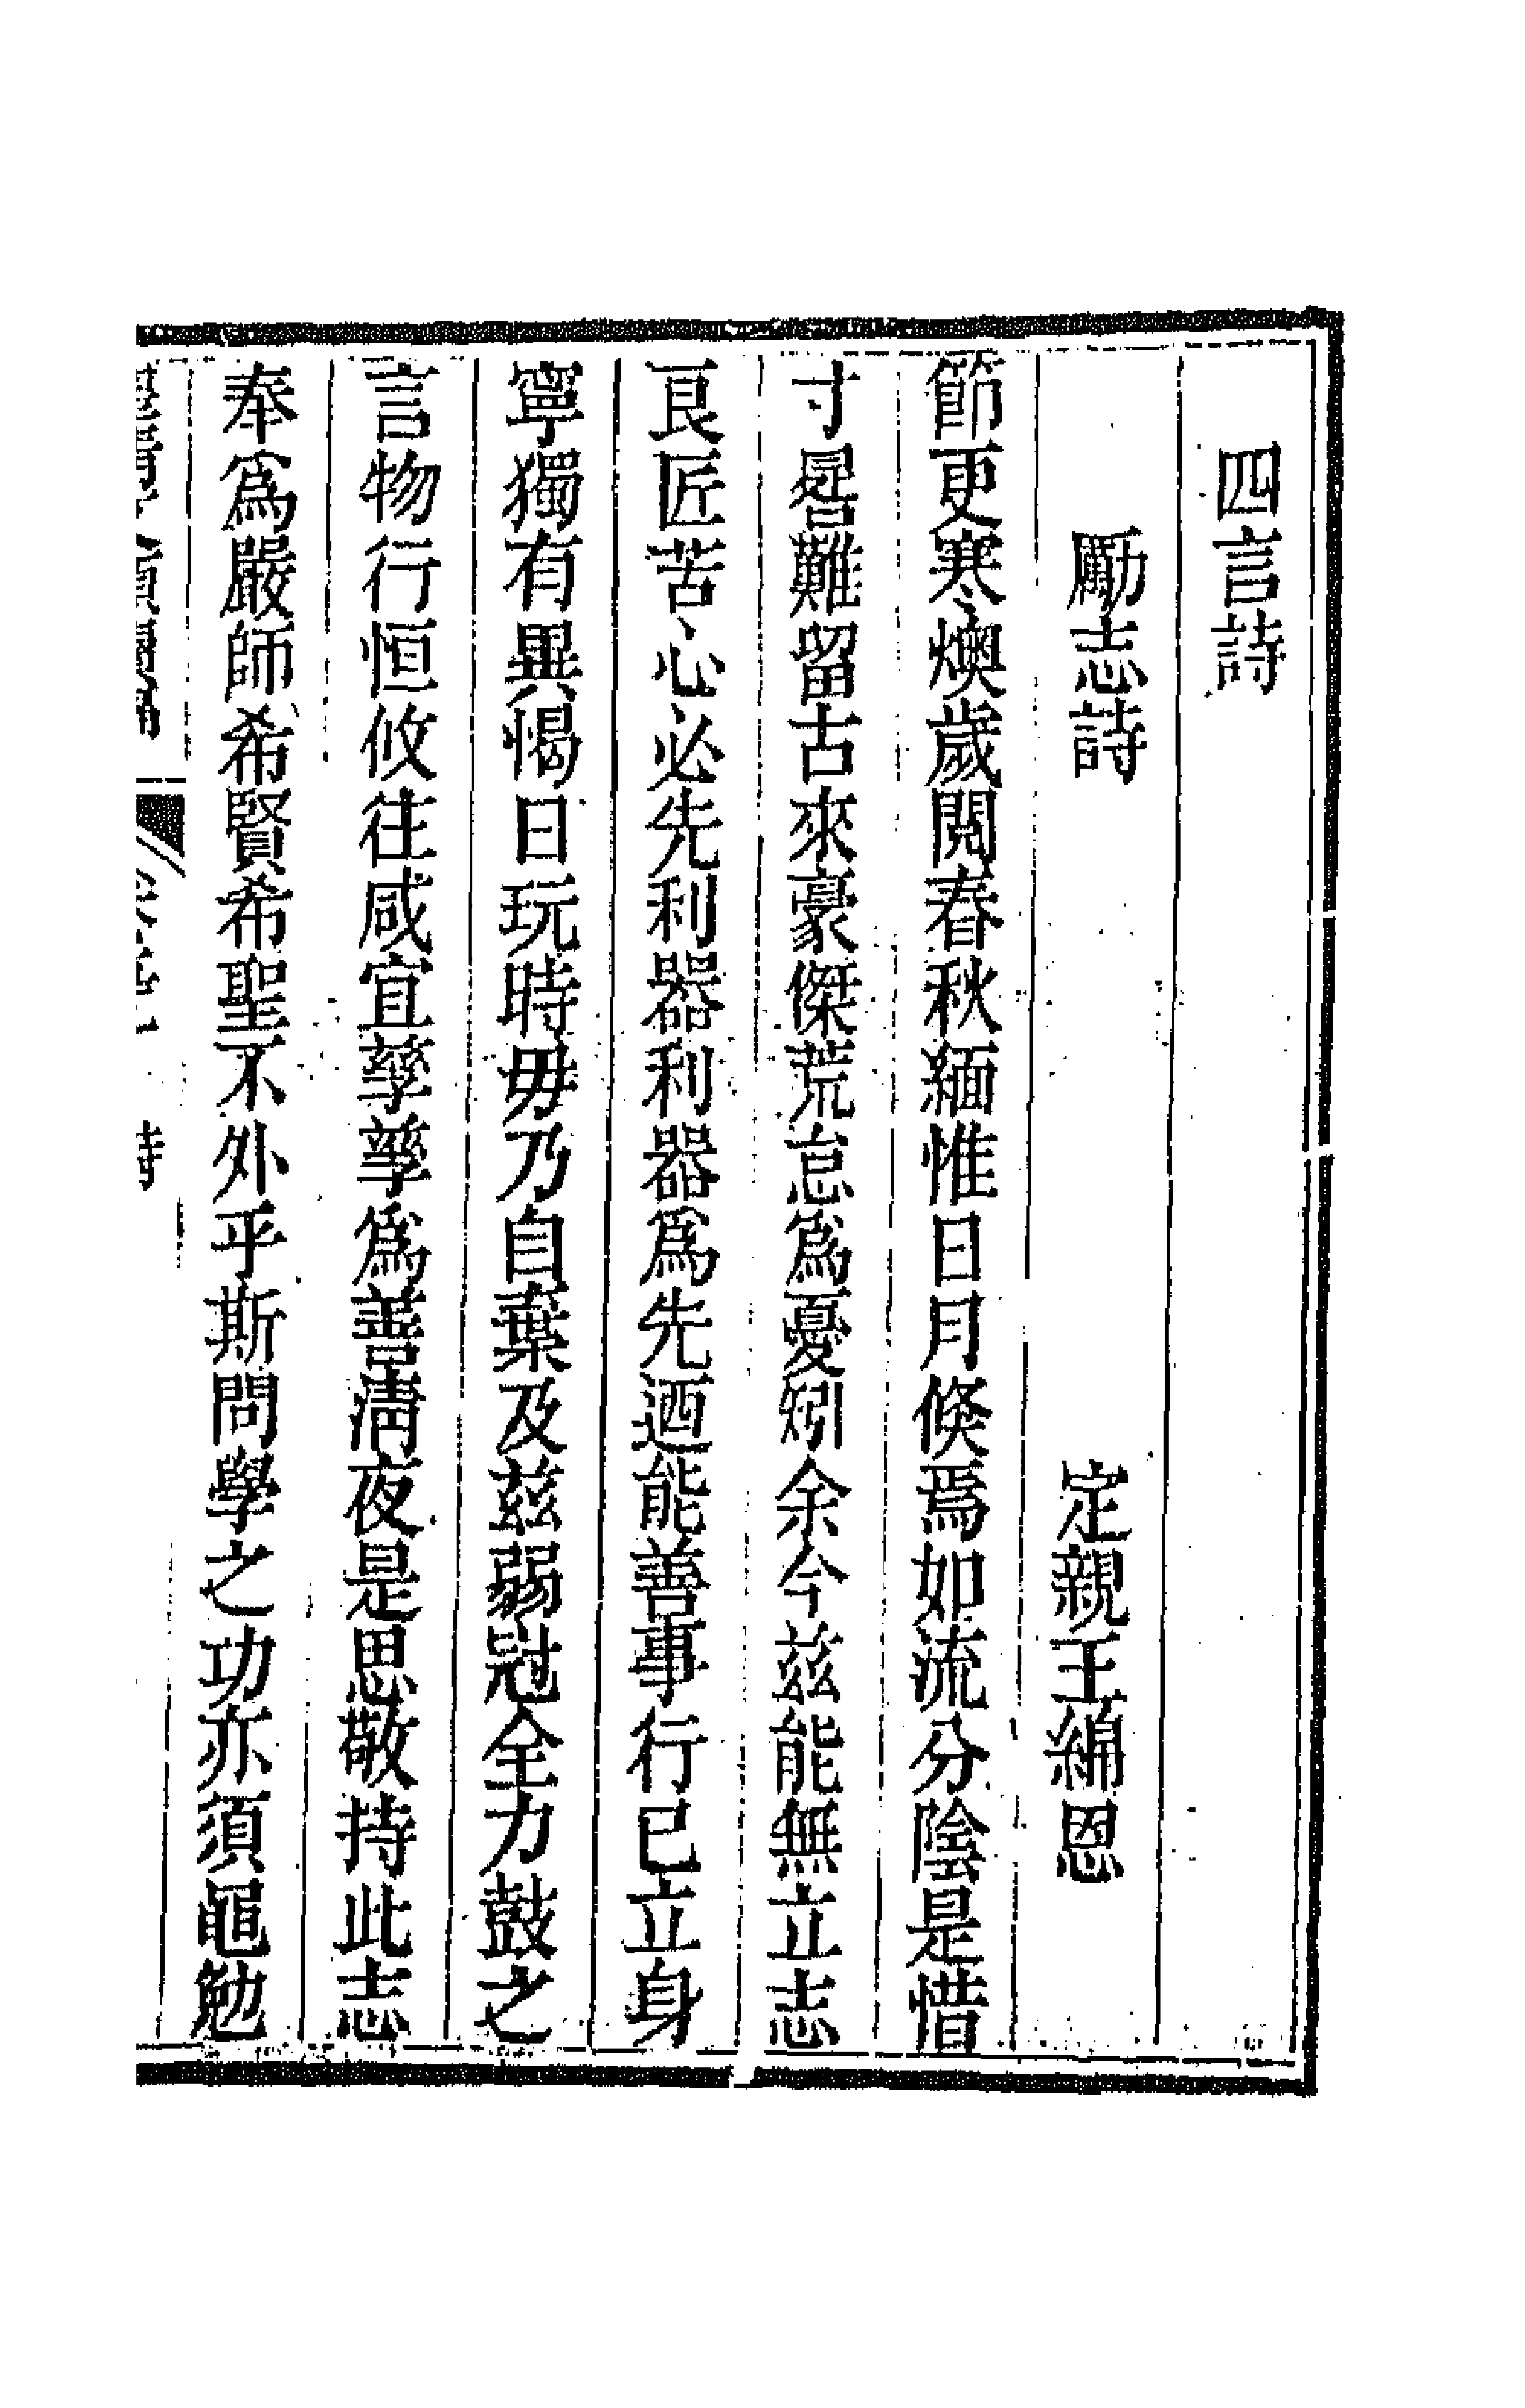 四言詩
勵志詩 定親王綿恩
節更寒燠歲閱春秋緬惟日月倐焉如流分陰是惜
寸晷難留古來豪傑荒怠為憂矧余今茲能無立志
良匠苦心必先利器利器為先迺能善事行已立身
寧獨有異愒日玩時毋乃自棄及茲弱冠全力鼓之
言物行恒攸往咸宜孳孳為善淸夜是思敬持此志
奉為嚴師希賢希聖不外乎斯問學之功亦須黽勉